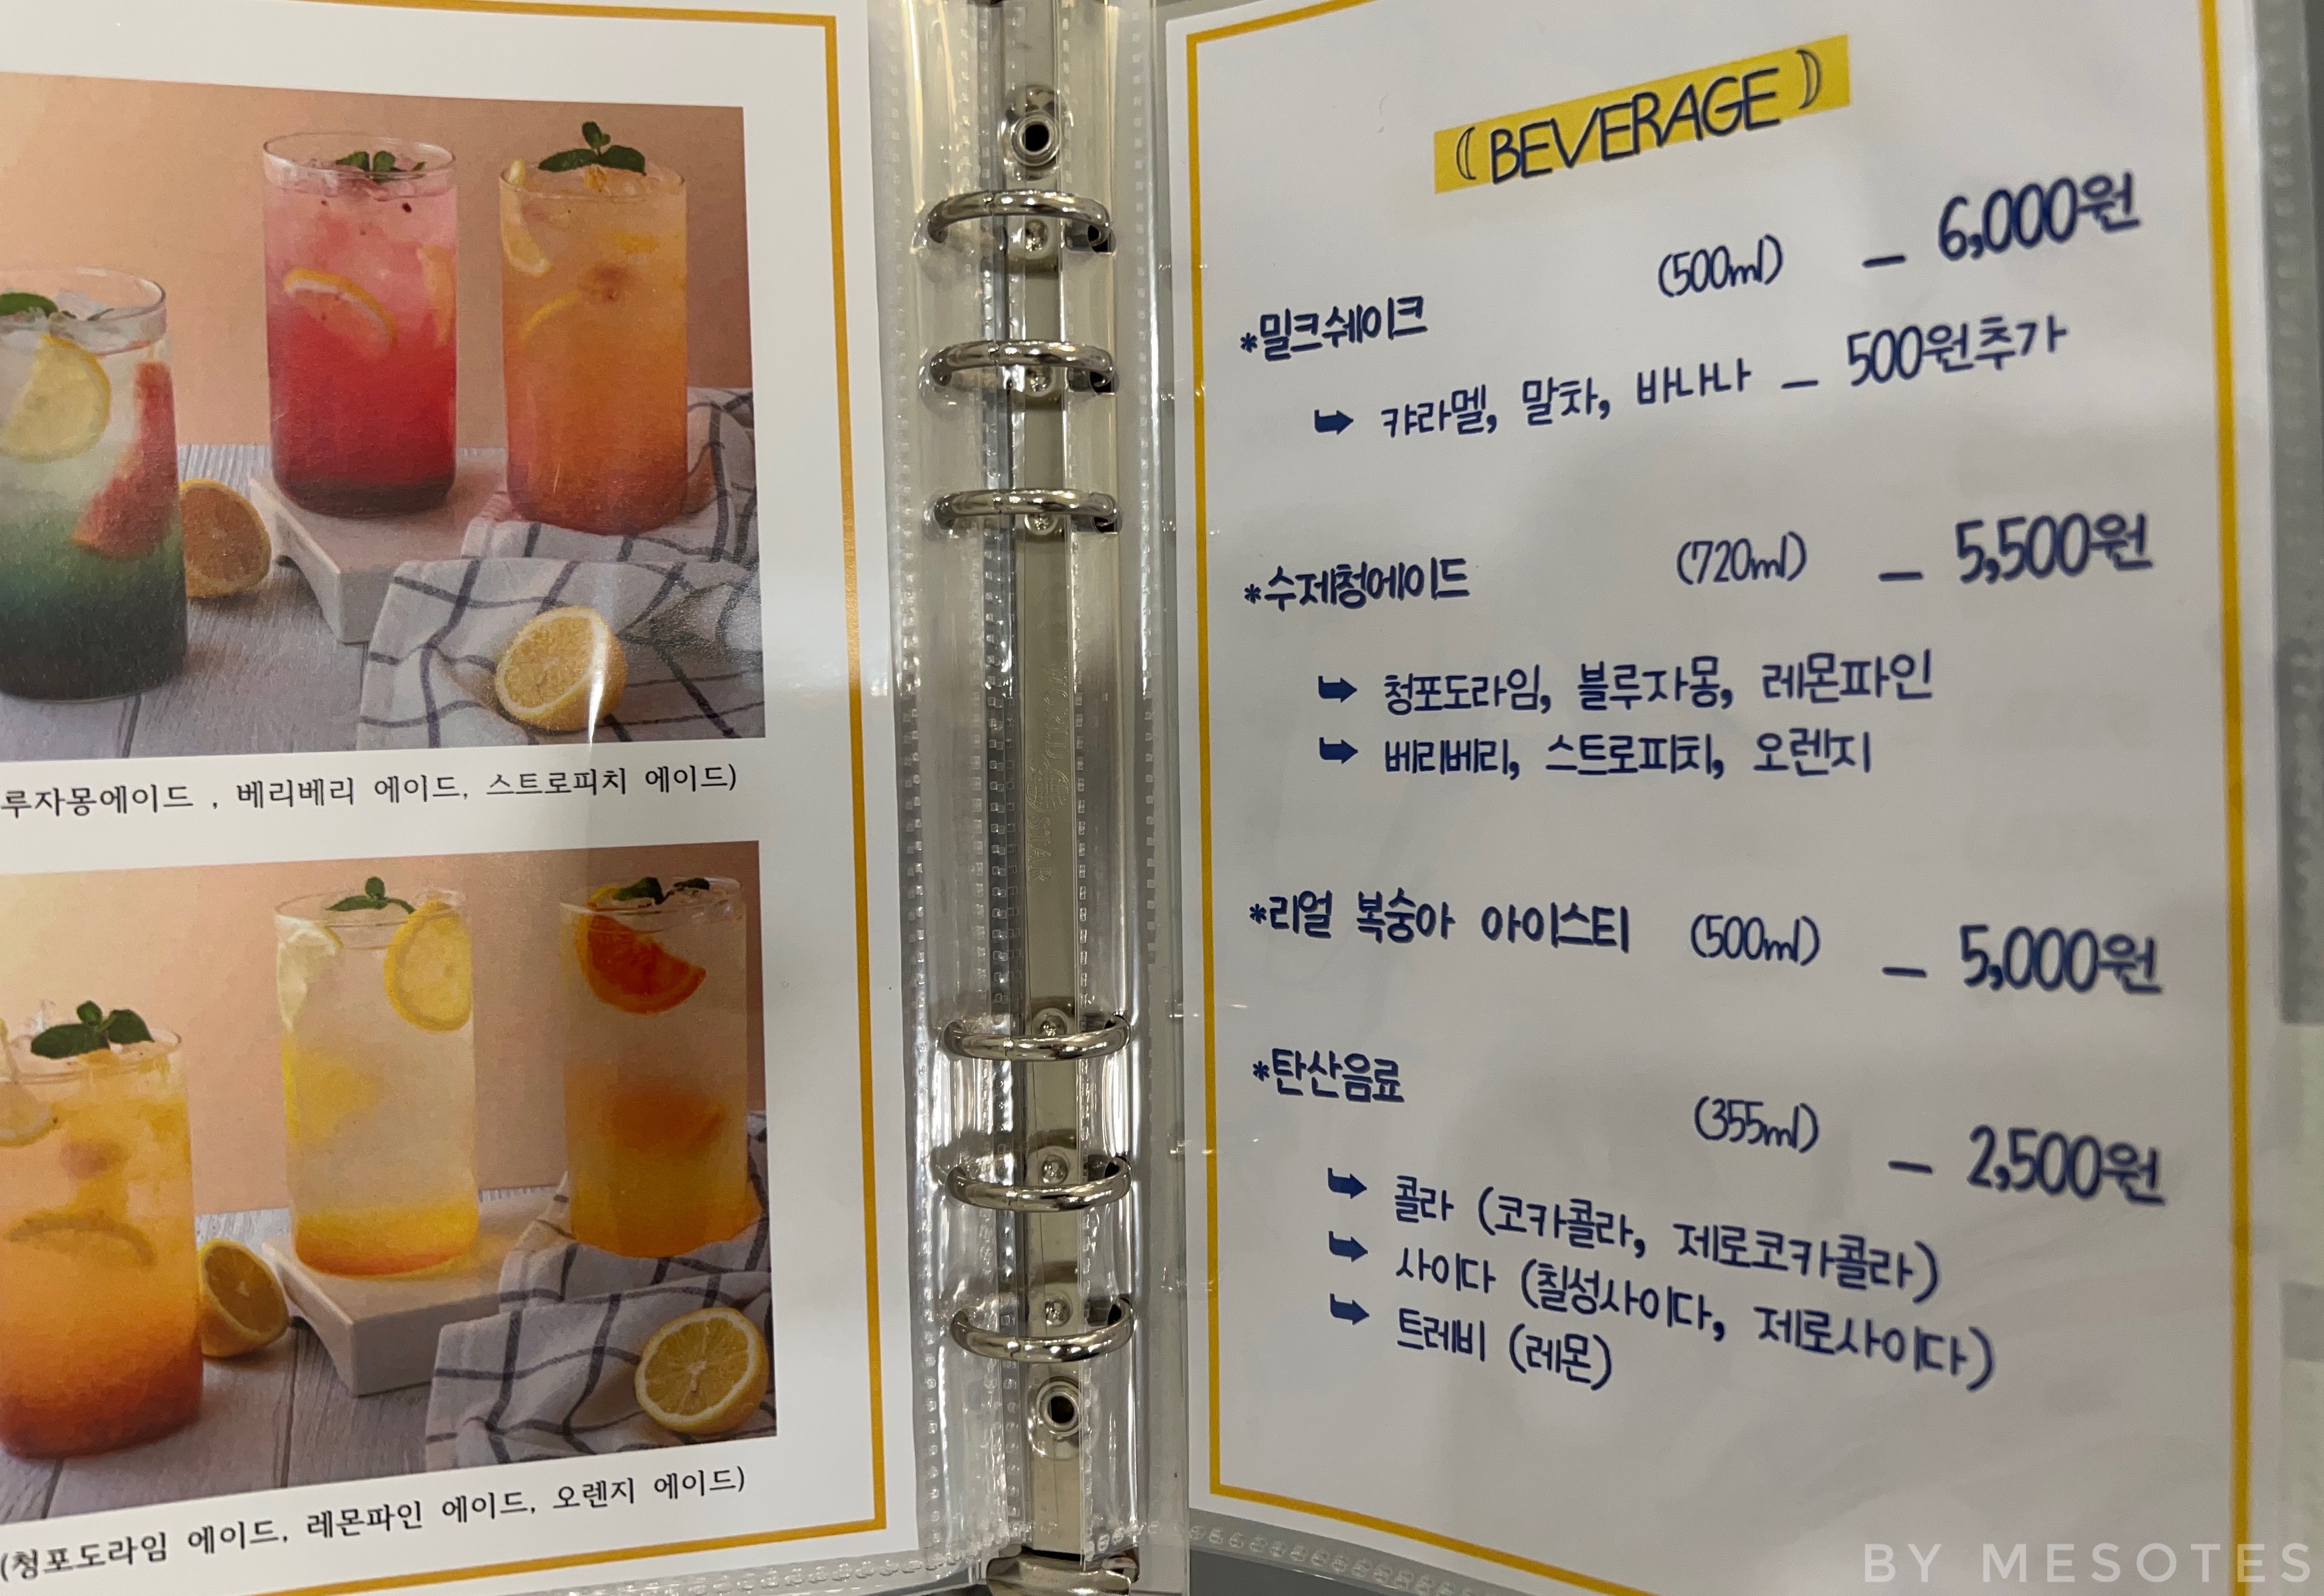 루자몽에이드 , 베리베리 에이드, 스트로피치 에이드)
(청포도라임 에이드, 레몬파인 에이드, 오렌지 에이드)
BEVERAGE
*밀크쉐이크 (500ml) - 6,000원
↳ 캬라멜, 말차, 바나나 - 500원추가
*수제청에이드 (720ml) - 5,500원
↳ 청포도라임, 블루자몽, 레몬파인
↳ 베리베리, 스트로피치, 오렌지
*리얼 복숭아 아이스티 (500ml) - 5,000원
*탄산음료 (355ml) - 2,500원
↳ 콜라 (코카콜라, 제로코카콜라)
↳ 사이다 (칠성사이다, 제로사이다)
↳ 트레비 (레몬)
BY MESOTES